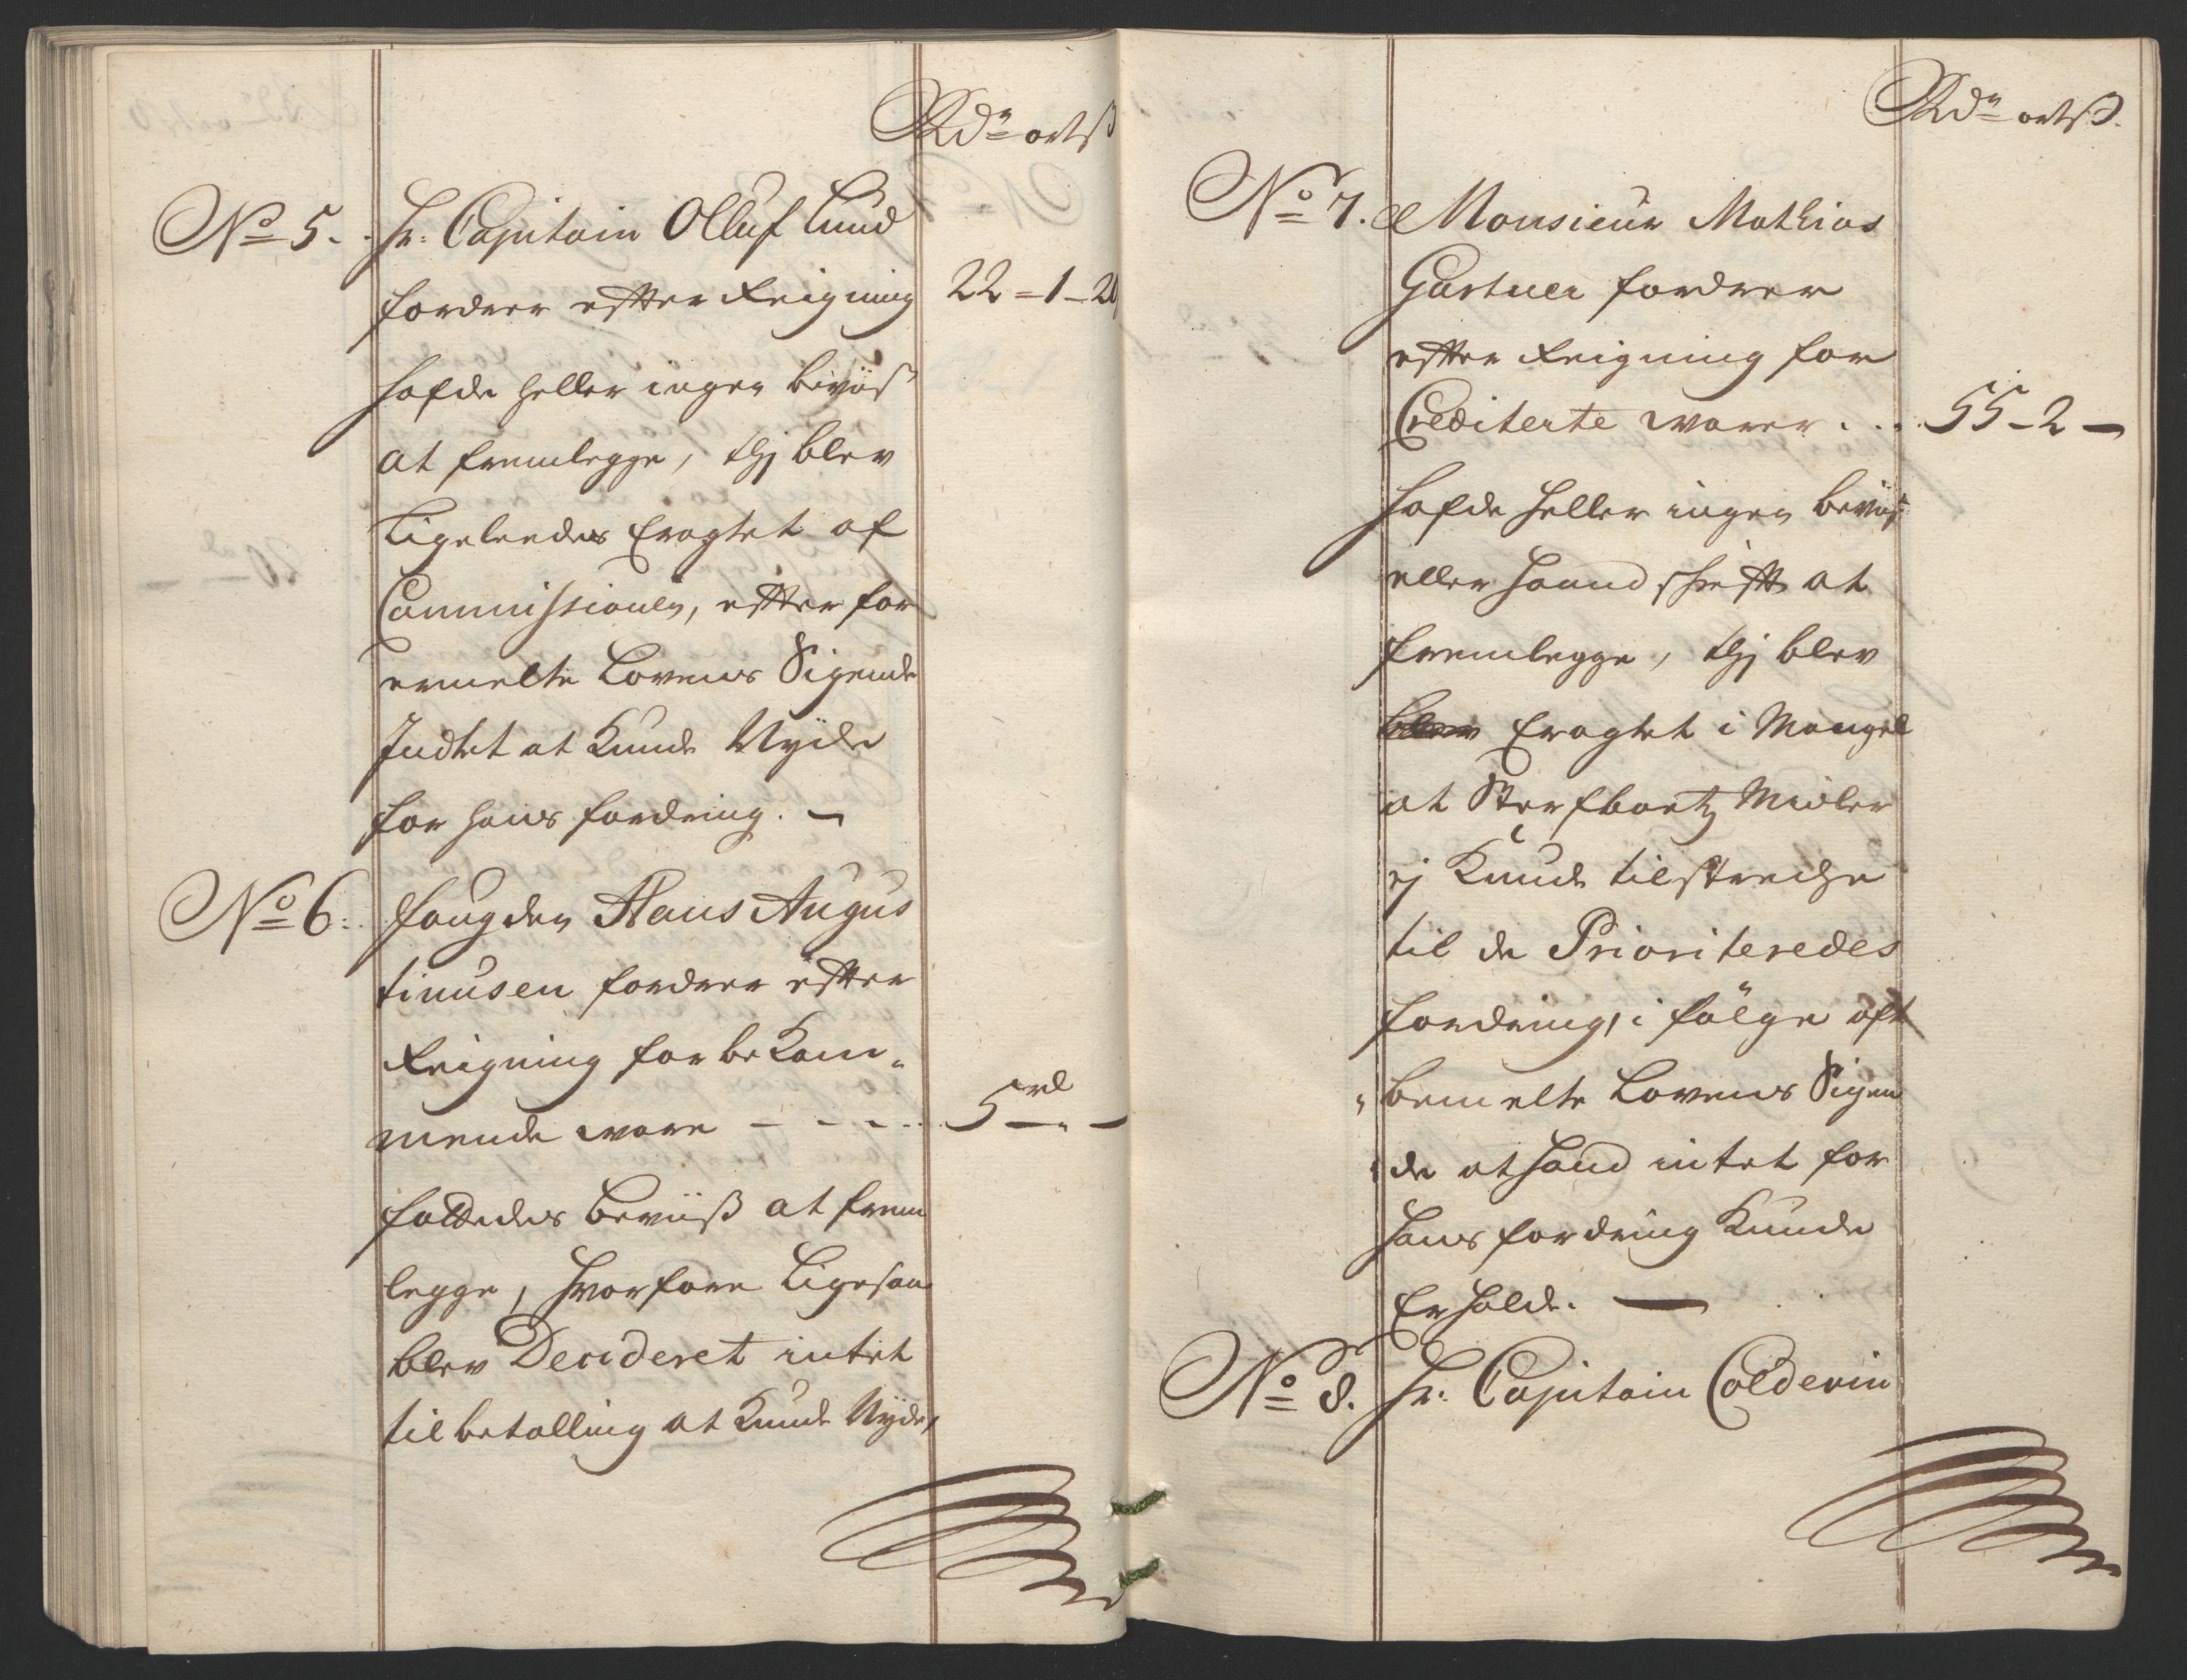 Rdr ort ß
No 5. Hr: Capitain Olluf Lund
fordrer efter Reigning 22 = 1 - 20
hafde heller ingen beviis
at fremlegge, thj blev
Ligeleedes Eragtet af
Commissionen, efter for
ermelte Lovens Sigende
Indtet at Kunde Nyde
for hans fordring. -
No 6: fougden Hans Augus
tinusen fordrer efter
Reigning for bekom-
mende vare - - - - 5 rd - -
fattedes beviiß at frem
legge, hvorfore Ligesaa
blev Decideret intet
til betalling at Kunde Nyde,
Rdr ort ß.
No 7. Monsieur Mathias
Gartner fordrer
efter Reigning for
Crediterte varer . . . 55 - 2 -
hafde heller ingen beviis
eller haand skrifft at
fremlegge, thj blev
blev Eragtet i Mangel
at Sterfboetz Midler
ej Kunde tilstrecke
til de Prioriteredes
fordring, i følge oft
bemelte Lovens Sigen
de at hand intet for
hans fordring Kunde
Erholde. -
No 8. Hr: Capitain Coldevin